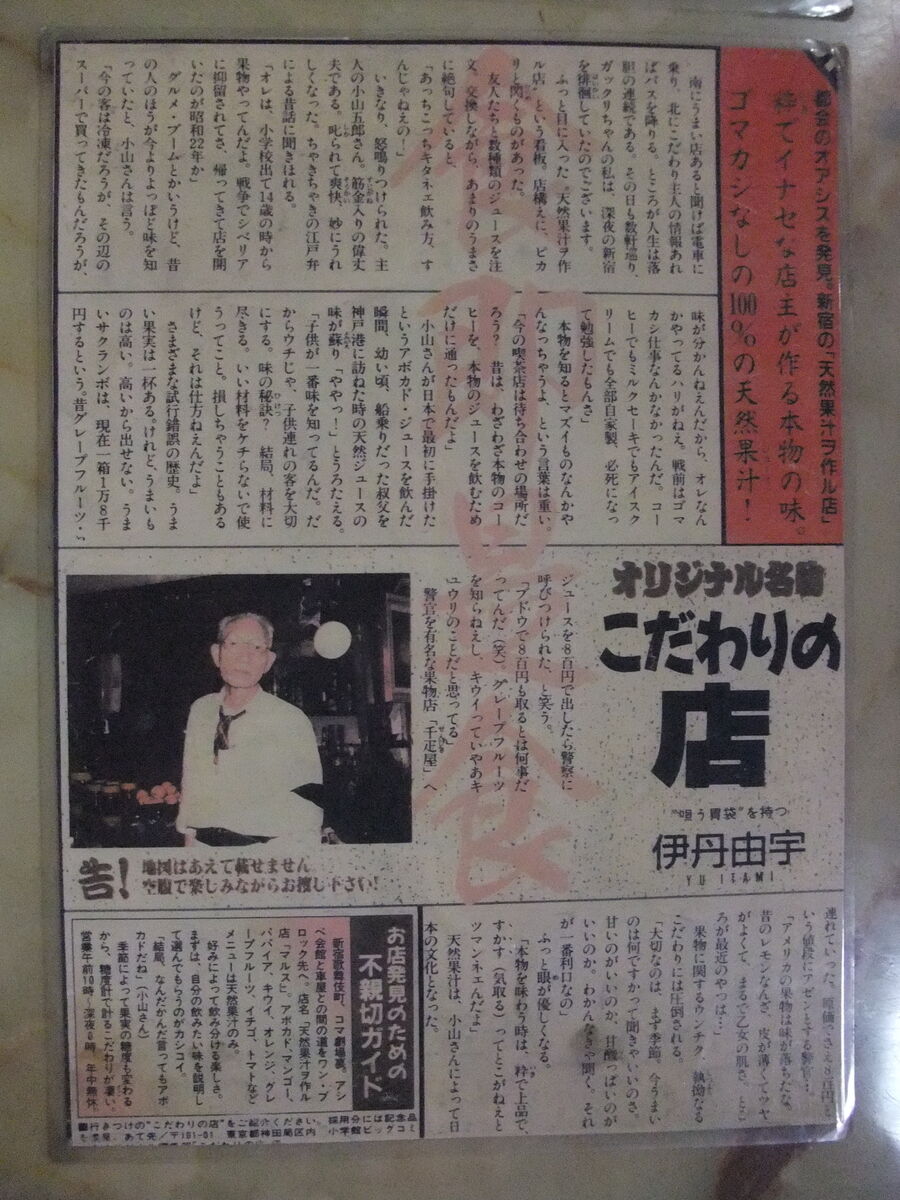 都会のオアシスを発見。新宿の「天然果汁ヲ作ル店」
粋でイナセな店主が作る本物の味。
ゴマカシなしの100%の天然果汁!
南にうまい店あると聞けば電車に
乗り、北にこだわり主人の情報あれ
ばバスを降りる。ところが人生は落
胆の連続である。その日も数軒巡り、
ガックリちゃんの私は、深夜の新宿
を徘徊していたのでございます。
ふっと目に入った"天然果汁ヲ作
ル店"という看板。店構えに、ピカ
リと閃くものがあった。
友人たちと数種類のジュースを注
文、交換しながら、あまりのうまさ
に絶句していると、
「あっちこっちキタネエ飲み方、す
んじゃねえの!」
いきなり、怒鳴りつけられた。主
人の小山五郎さん。筋金入りの偉丈
夫である。叱られて爽快、妙にうれ
しくなった。ちゃきちゃきの江戸弁
による昔話に聞きほれる。
「オレは、小学校出て14歳の時から
果物やってんだよ。戦争でシベリア
に抑留されてさ、帰ってきて店を開
いたのが昭和22年か」
グルメ・ブームとかいうけど、昔
の人のほうが今よりよっぽど味を知
っていたと、小山さんは言う。
「今の客は冷凍だろうが、その辺の
スーパーで買ってきたもんだろうが、
味が分かんねえんだから、オレなん
かやってるハリがねえ。戦前はゴマ
カシ仕事なんかなかったんだ。コー
ヒーでもミルクセーキでもアイスク
リームでも全部自家製、必死になっ
て勉強したもんさ」
本物を知るとマズイものなんかや
んなっちゃうよ、という言葉は重い。
「今の喫茶店は待ち合わせの場所だ
ろう?昔は、わざわざ本物のコー
ヒーを、本物のジュースを飲むため
だけに通ったもんだよ」
小山さんが日本で最初に手掛けた
というアボカド・ジュースを飲んだ
瞬間、幼い頃、船乗りだった叔父を
神戸港に訪ねた時の天然ジュースの
味が蘇り「ややっ!」とうろたえる。
「子供が一番味を知ってるんだ。だ
からウチじゃ、子供連れの客を大切
にする。味の秘訣?結局、材料に
尽きる。いい材料をケチらないで使
うってこと。損しちゃうこともある
けど、それは仕方ねえんだよ」
さまざまな試行錯誤の歴史。うま
い果実は一杯ある。けれど、うまいも
のは高い。高いから出せない。うま
いサクランボは、現在一箱1万8千
円するという。昔グレープフルーツ・
オリジナル名物
こだわりの
店
"唄う胃袋"を持つ
伊丹由宇
YU ITAMI
ジュースを8百円で出したら警察に
呼びつけられた、と笑う。
「ブドウで8百円も取るとは何事だ
ってんだ(笑)。グレープフルーツ
を知らねえし、キウイっていやあキ
ュウリのことだと思ってる」
警官を有名な果物店「千疋屋」へ
告!
地図はあえて載せません
空腹で楽しみながらお探し下さい!
連れていった。原価でさえ8百円と
いう値段にアゼンとする警官…。
「アメリカの果物は味が落ちたな。
昔のレモンなんざ、皮が薄くてツヤ
がよくて、まるで乙女の肌さ。とこ
ろが最近のやつは…」
果物に関するウンチク、執拗なる
こだわりには圧倒される。
「大切なのは、まず季節。今うまい
のは何ですかって聞きゃいいのさ。
甘いのがいいのか、甘酸っぱいのが
いいのか。わかんなきゃ聞く、それ
が一番利口なの」
ふっと眼が優しくなる。
「本物を味わう時は、粋で上品で、
すかす(気取る)ってとこがねえと
ツマンネエんだよ」
天然果汁は、小山さんによって日
本の文化となった。
お店発見のための
不親切ガイド
新宿歌舞伎町、コマ劇場裏。アシ
ベ会館と車屋との間の道をワン・ブ
ロック先へ。店名「天然果汁ヲ作ル
店「マルス」」。アボカド、マンゴー、
パパイア、キウイ、オレンジ、グレ
ープフルーツ、イチゴ、トマトなど
メニューは天然果汁のみ。
好みによって飲み分ける楽しさ。
まずは、自分の飲みたい味を説明し
て選んでもらうのがカシコイ。
「結局、なんだかんだ言ってもアボ
カドだね」(小山さん)
季節によって果実の糖度も変わる
から、糖度計で計るこだわりが凄い。
営業午前10時〜深夜0時 年中無休
■行きつけの"こだわりの店"をご紹介ください。採用分には記念品
あて先/〒101-01 東京都神田局区内 小学館ビッグコミ